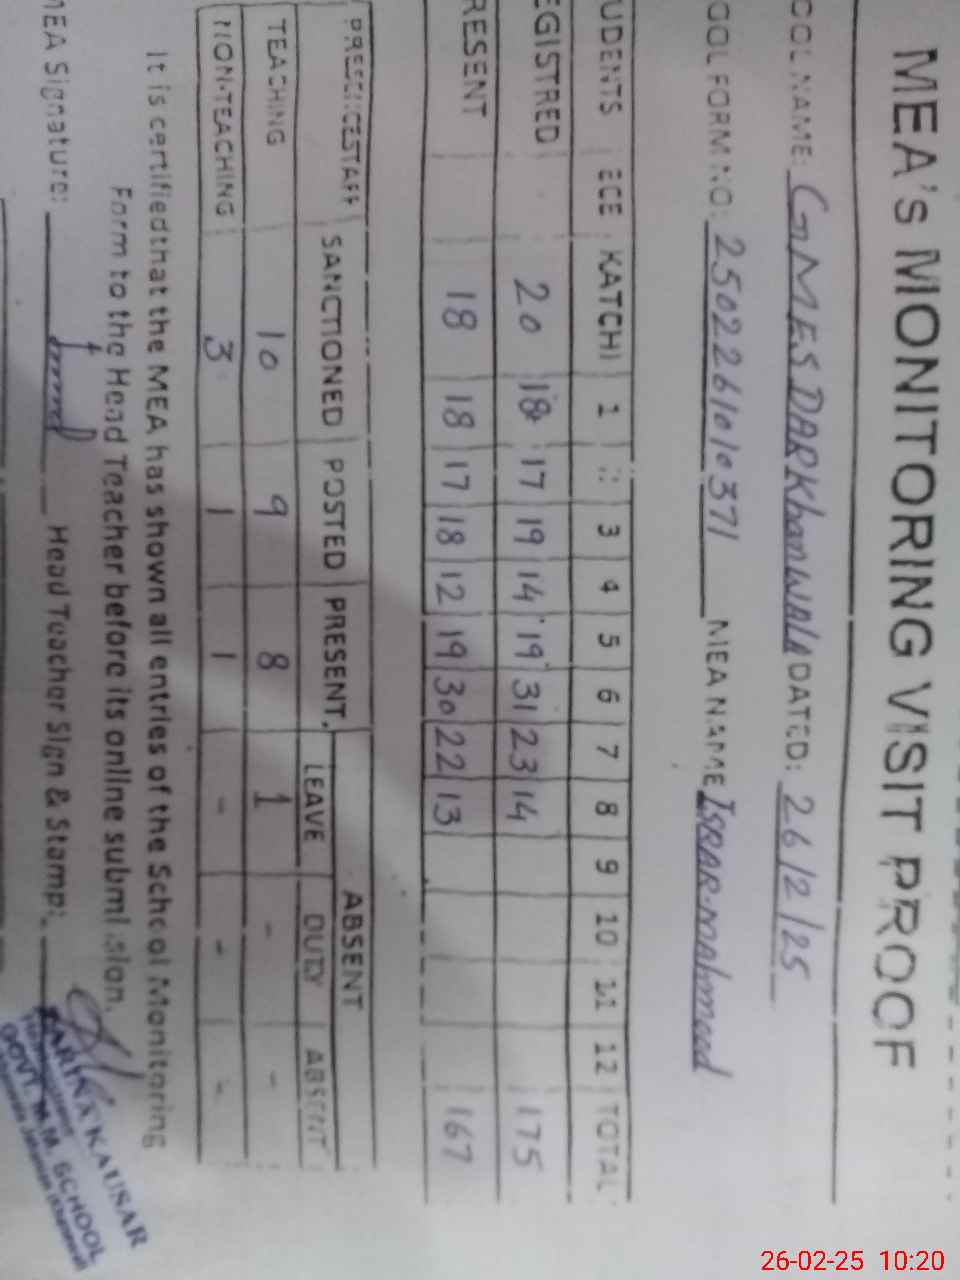 MEA's MONITORING VISIT PROOF
OOL NAME: GMES DARKhanWAla DATED: 26/2/25
OOL FORM NO: 2502261010371 MEA NAME ISRAR mahmood
UDENTS ECE KATCHI 1 3 4 5 6 7 8 9 10 11 12 TOTAL
EGISTRED 20 18 17 19 14 19 31 23 14 175
RESENT 18 18 17 18 12 19 30 22 13 167
PRESENCE STAFF SANCTIONED POSTED PRESENT ABSENT
LEAVE DUTY ABSENT
TEACHING 10 9 8 1 - -
NON-TEACHING 3 1 1 - - -
It is certified that the MEA has shown all entries of the School Monitoring
Form to the Head Teacher before its online submission.
MEA Signature: Head Teacher Sign & Stamp:
KAUSAR
GOVT. M.M. SCHOOL
26-02-25 10:20